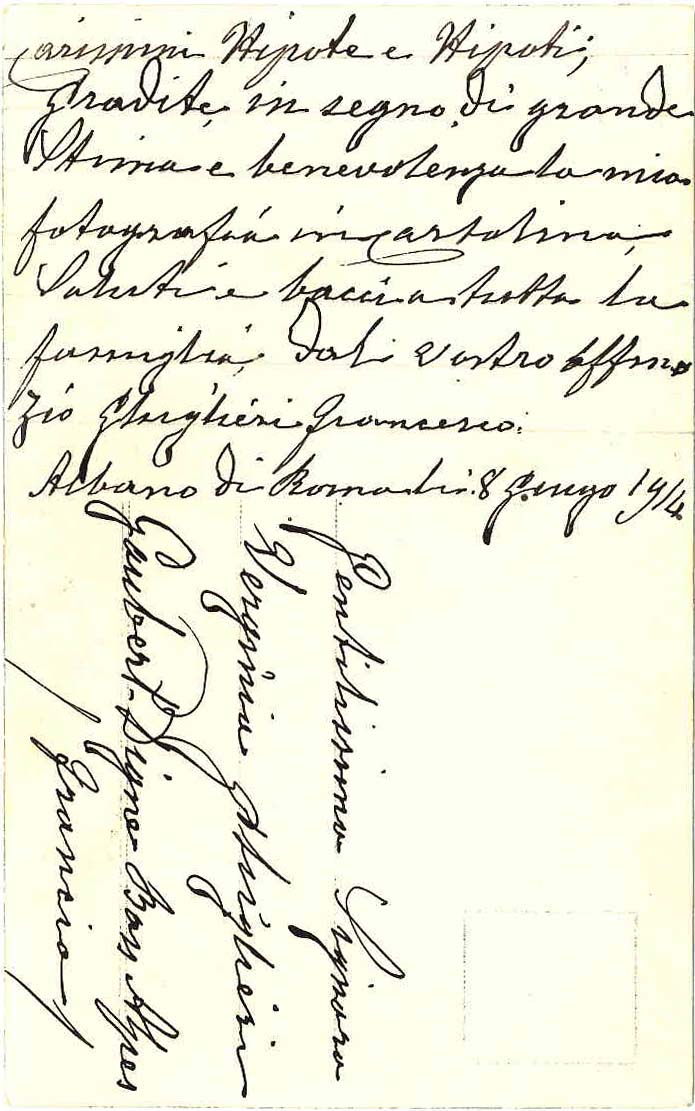 Carissimi Nipote e Nipoti;
Gradite, in segno di grande
Stima e benevolenza la mia
fotografia in Cartolina,
Saluti e bacci a tutta la
famiglia, dal vostro Affmo
Zio Ghiglieri Francesco.
Albano di Roma li 8 Giugo 1914
Gentilissima Signora
Verginia Ghiglieri
Gaubert-Digne Bass Alpes
Francia